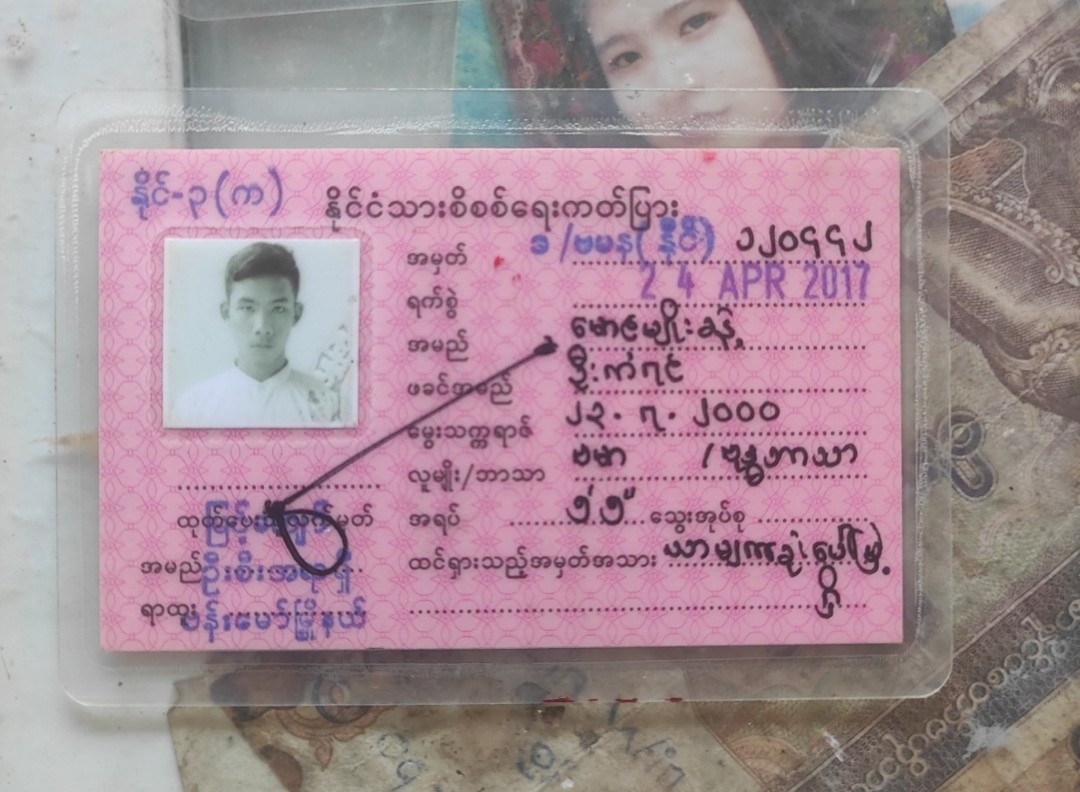 နိုင်-၃(က)
နိုင်ငံသားစိစစ်ရေးကတ်ပြား
အမှတ် ၁/ဗမန(နိုင်) ၁၂၀၄၄၂
ရက်စွဲ 24 APR 2017
အမည် မောင်မျိုးခန့်
ဖခင်အမည် ဦး
မွေးသက္ကရာဇ် ၂၃.၇.၂၀၀၀
လူမျိုး/ဘာသာ ဗမာ / ဗုဒ္ဓဘာသာ
အရပ် ၅'၅" သွေးအုပ်စု
ထင်ရှားသည့်အမှတ်အသား
ထုတ်ပေးသူလက်မှတ်
အမည် ဦးစီးအရာရှိ
ရာထူး ဗန်းမော်မြို့နယ်